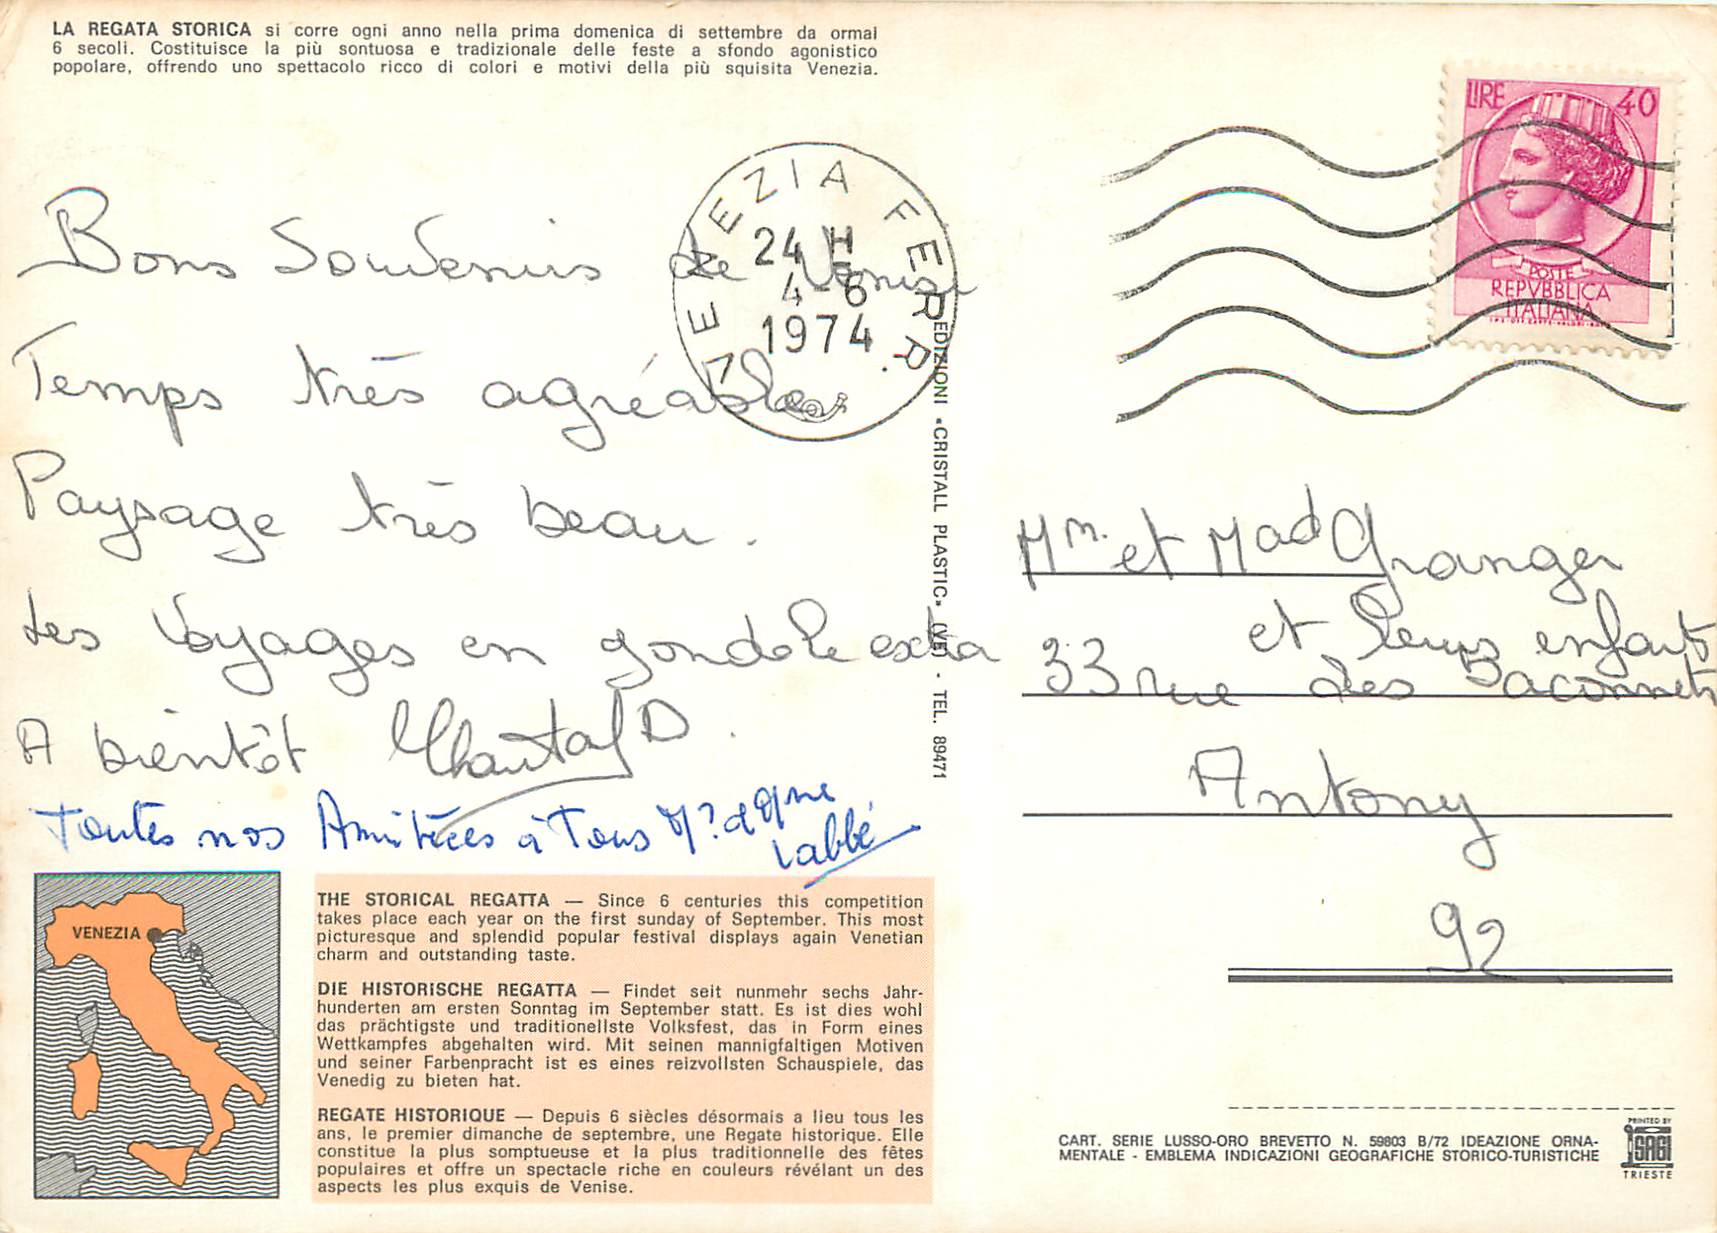 LA REGATA STORICA si corre ogni anno nella prima domenica di settembre da ormai
6 secoli. Costituisce la più sontuosa e tradizionale delle feste a sfondo agonistico
popolare, offrendo uno spettacolo ricco di colori e motivi della più squisita Venezia.
Bons Souvenirs de Venise
Temps très agréable
Paysage très beau.
Les Voyages en gondole extra
A bientôt Chantal D.
Toutes nos Amitiées à Tous Mr et Mme
Labbé
VENEZIA FERR.
24 H
4-6
1974
LIRE 40
POSTE
REPVBBLICA
ITALIANA
EDIZIONI «CRISTALL PLASTIC» (VE) - TEL. 89471
Mm. et Mad Granger
et leurs enfants
33 rue des Baconnets
Antony
92
VENEZIA
THE STORICAL REGATTA — Since 6 centuries this competition
takes place each year on the first sunday of September. This most
picturesque and splendid popular festival displays again Venetian
charm and outstanding taste.
DIE HISTORISCHE REGATTA — Findet seit nunmehr sechs Jahr-
hunderten am ersten Sonntag im September statt. Es ist dies wohl
das prächtigste und traditionellste Volksfest, das in Form eines
Wettkampfes abgehalten wird. Mit seinen mannigfaltigen Motiven
und seiner Farbenpracht ist es eines reizvollsten Schauspiele, das
Venedig zu bieten hat.
REGATE HISTORIQUE — Depuis 6 siècles désormais a lieu tous les
ans, le premier dimanche de septembre, une Regate historique. Elle
constitue la plus somptueuse et la plus traditionnelle des fêtes
populaires et offre un spectacle riche en couleurs révélant un des
aspects les plus exquis de Venise.
CART. SERIE LUSSO-ORO BREVETTO N. 59803 B/72 IDEAZIONE ORNA-
MENTALE - EMBLEMA INDICAZIONI GEOGRAFICHE STORICO-TURISTICHE
PRINTED BY
SAGI
TRIESTE